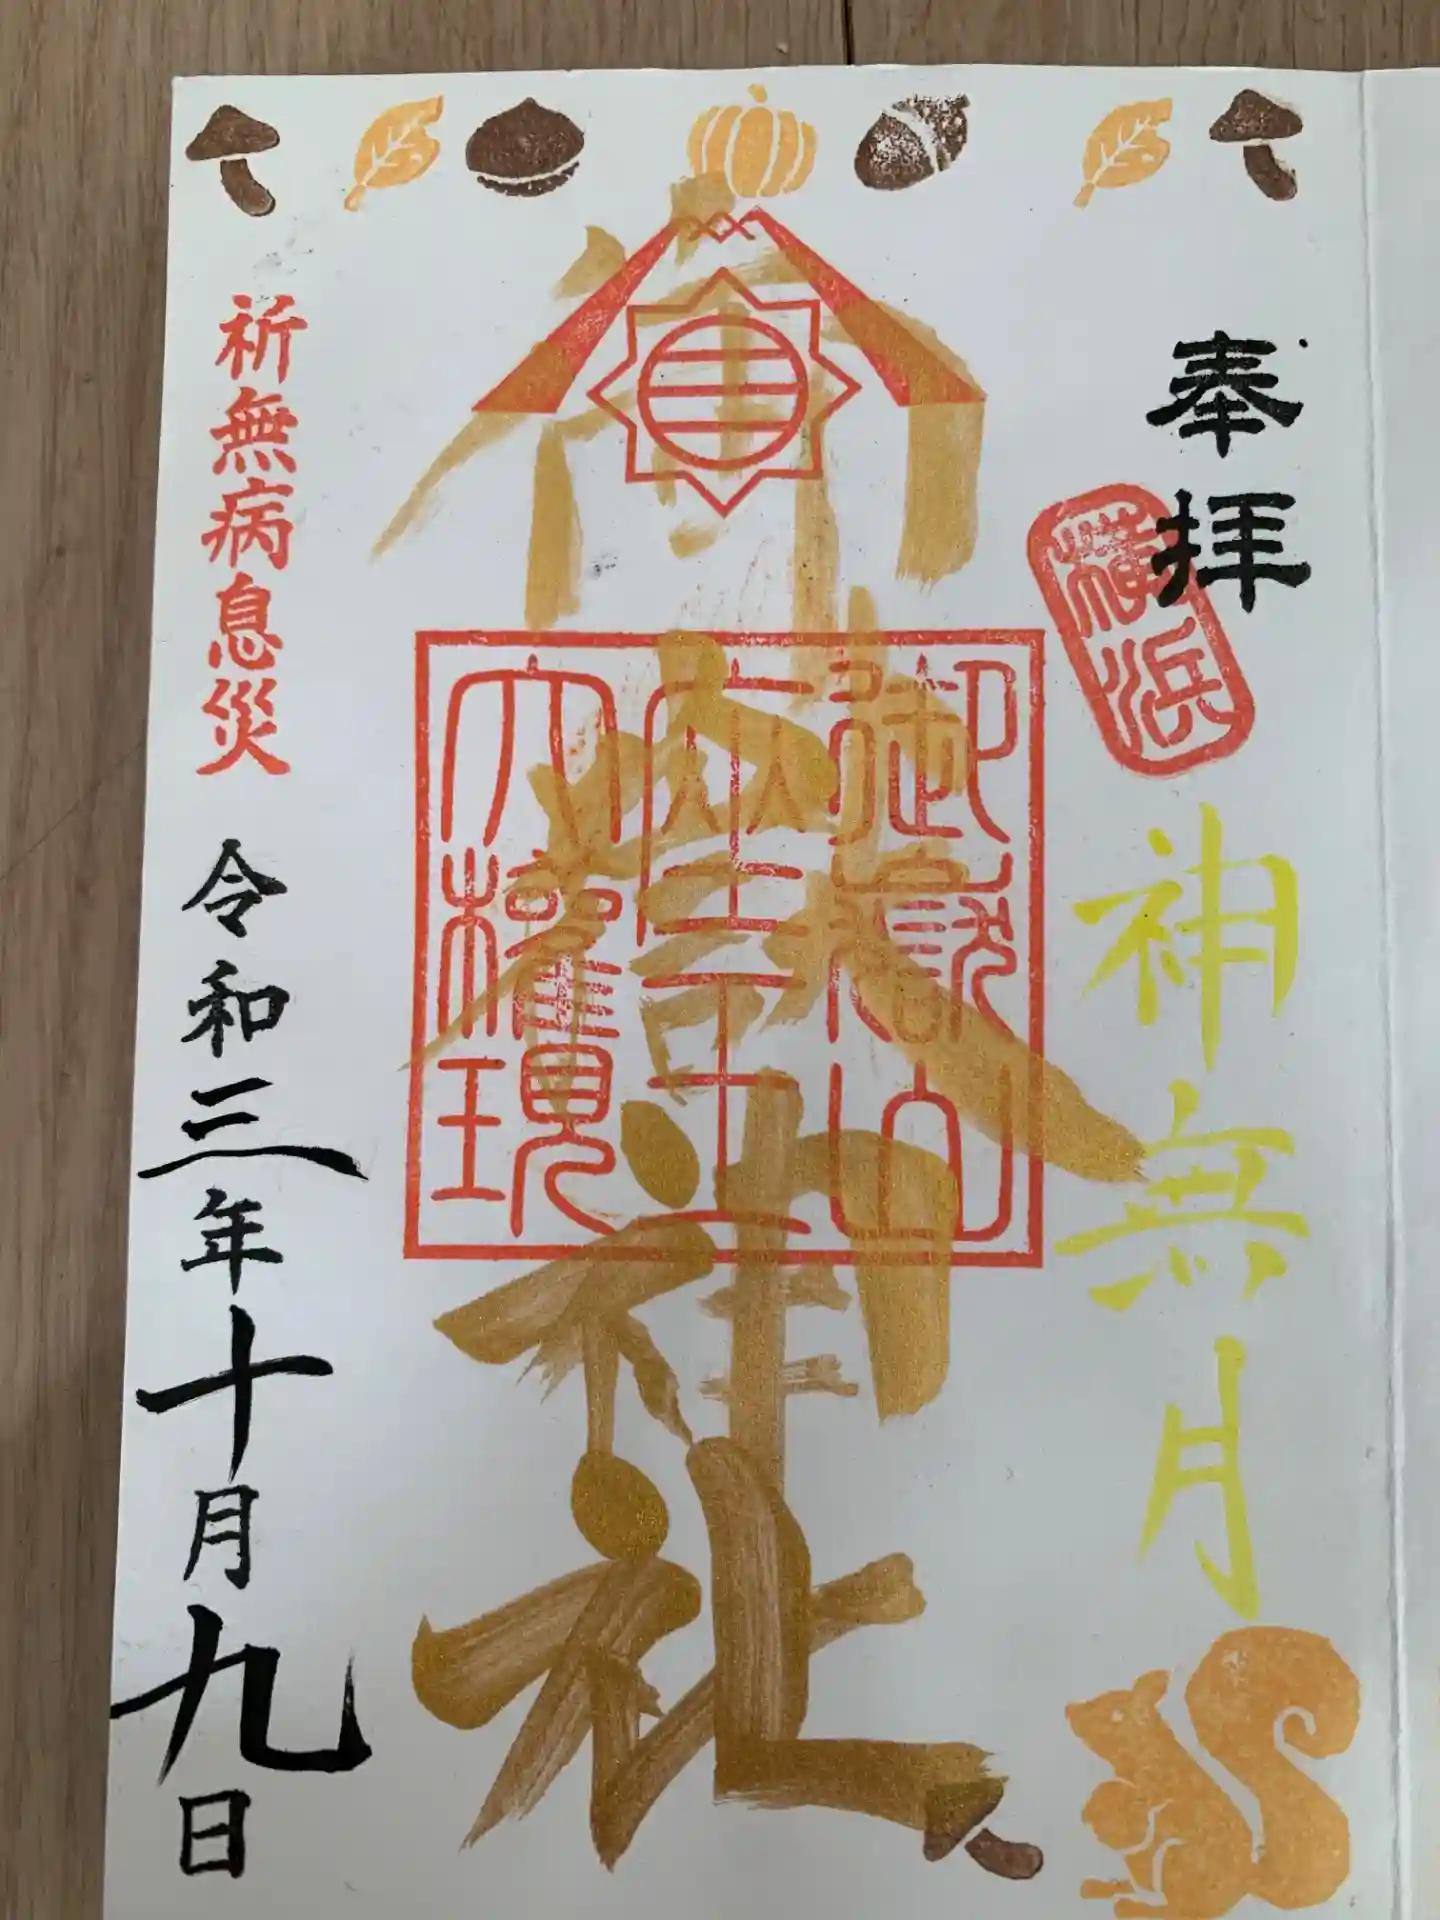 奉拝
横浜
神無月
御嶽神社
御嶽山
座王
大權現
祈無病息災
令和三年十月九日